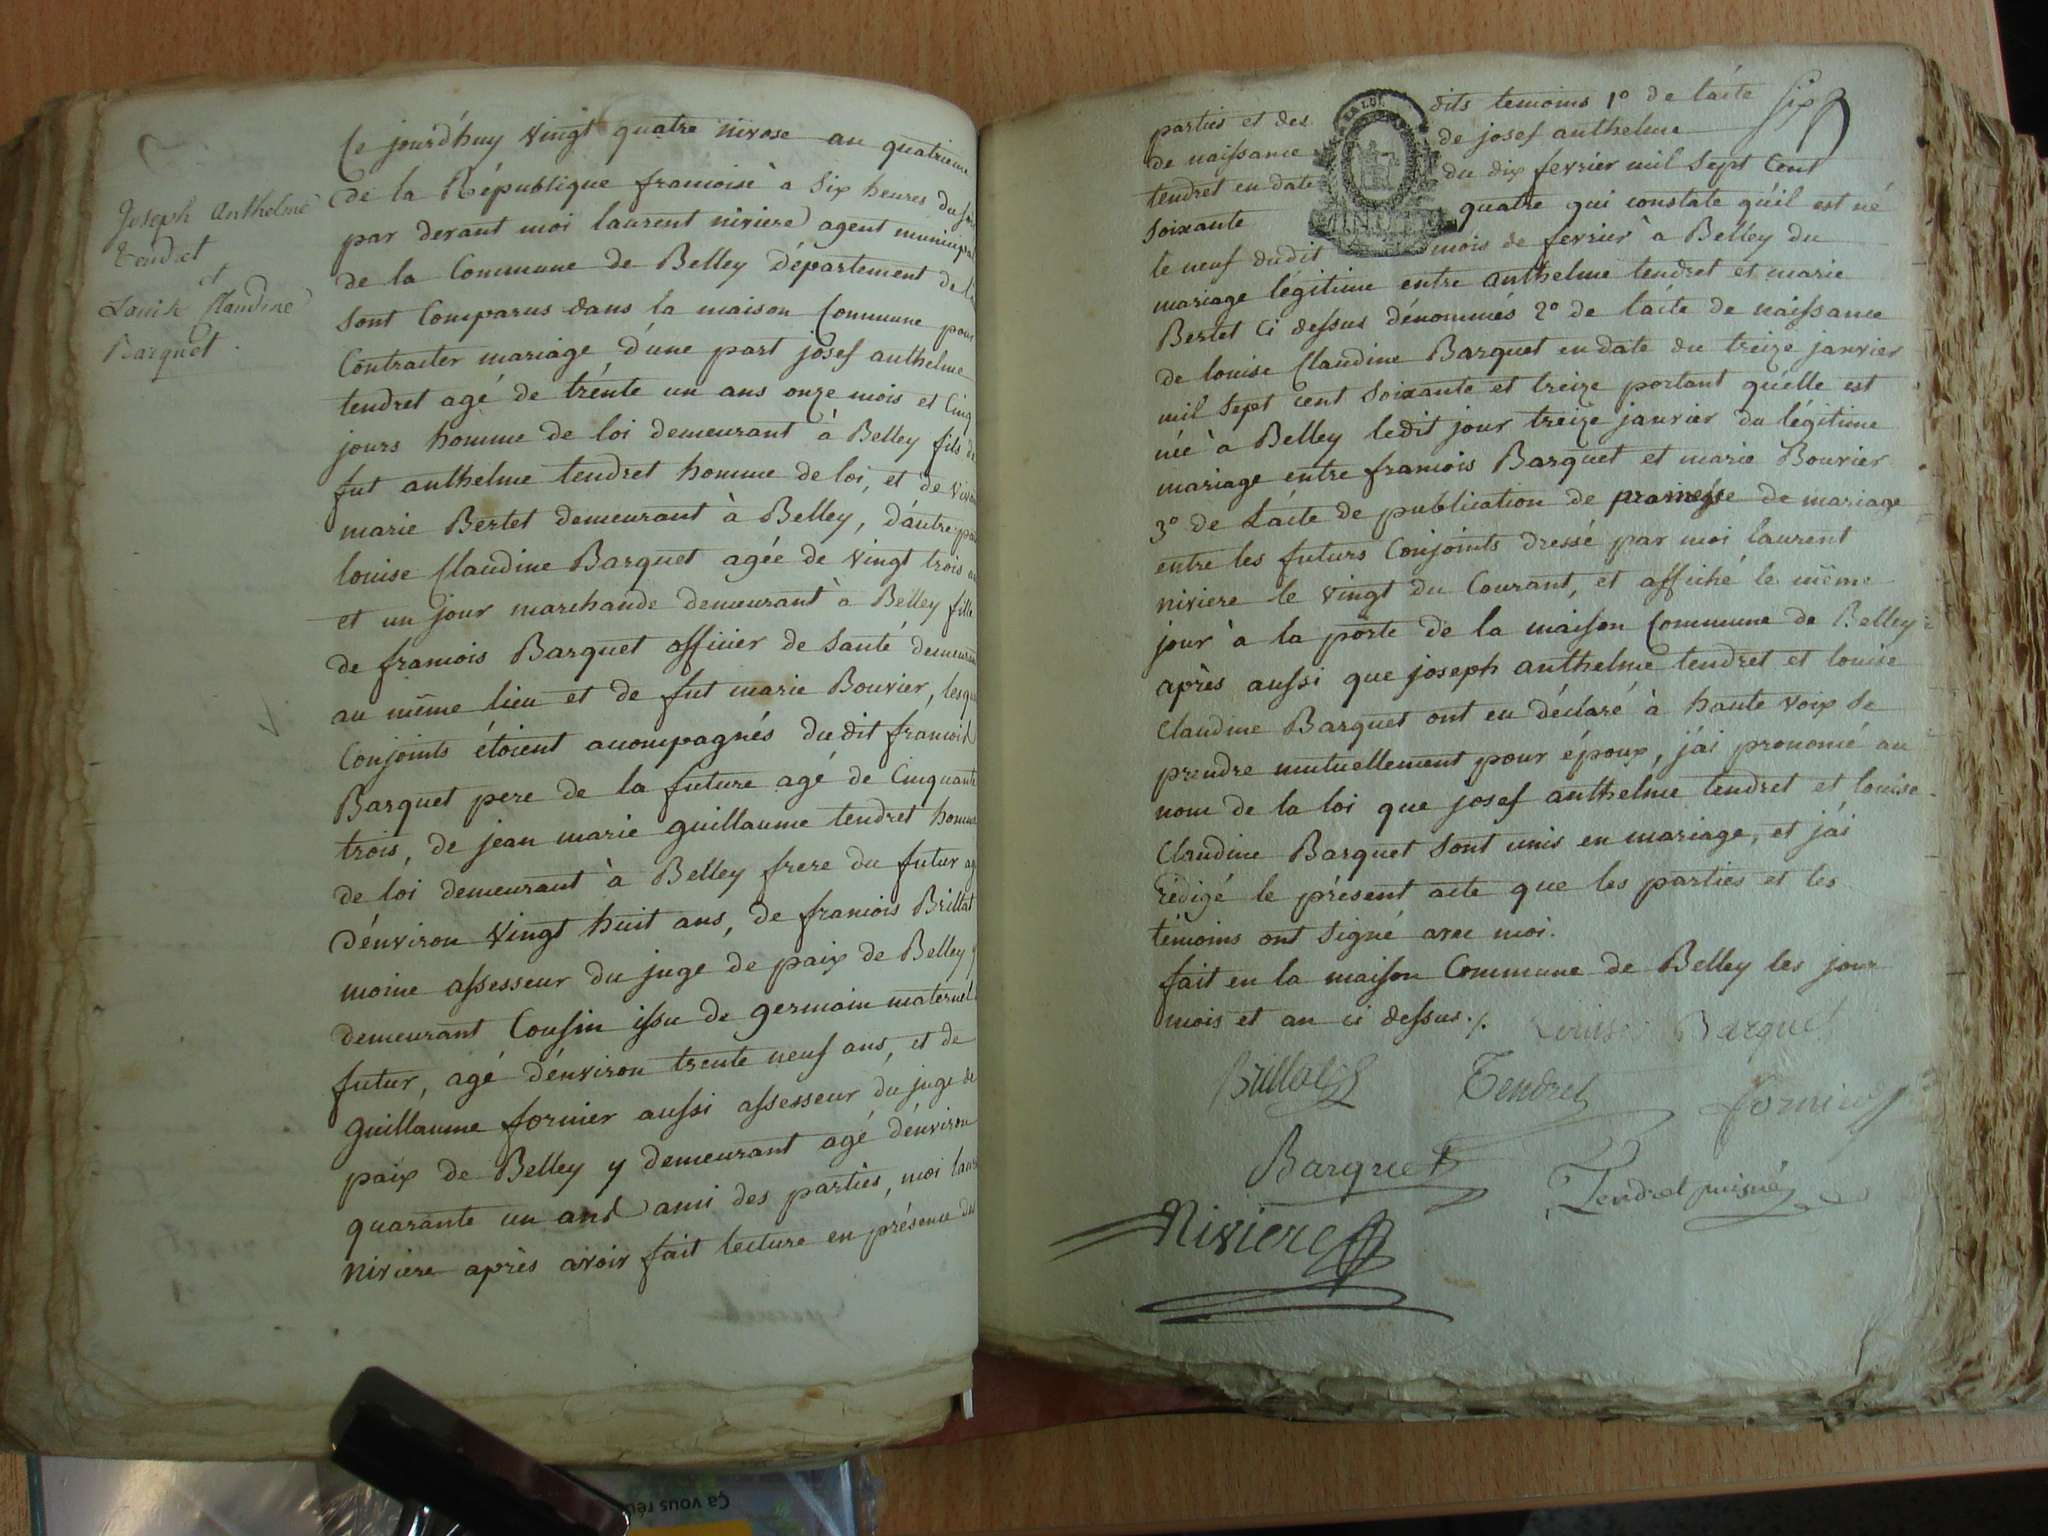 Joseph Anthelme
Tendret
et
Louise Claudine
Barquet
Ce jourd'huy vingt quatre nivose an quatrieme
de la République francoise à six heures du soir
par devant moi laurent niviere agent municipal
de la Commune de Belley département de l'
sont Comparus dans la maison Commune pour
Contracter mariage d'une part josef anthelme
tendret agé de trénte un ans onze mois et Cinq
jours homme de loi demeurant à Belley fils de
fut anthelme tendret homme de loi, et de vivante
marie Bertet demeurant à Belley, d'autre part
louise Claudine Barquet agée de vingt trois ans
et un jour marchande demeurant à Belley fille
de francois Barquet officier de santé demeurant
au même lieu et de fut marie Bouvier, lesquels
Conjoints étoient acompagnés dudit francois
Barquet pere de la future agé de Cinquante
trois, de jean marie guillaume tendret homme
de loi demeurant à Belley frere du futur agé
d'énviron vingt huit ans, de francois Brillat
moine assesseur du juge de paix de Belley y
demeurant Cousin issu de germain maternel
futur, agé d'énviron trente neuf ans, et de
guillaume fornier aussi assesseur du juge de
paix de Belley y demeurant agé d'énviron
quarante un ans ami des parties, moi laurent
niviere après avoir fait lecture en présence des
parties et des dits temoins 1° de l'acte six
de naissance de josef anthelme
tendret en date du dix fevrier mil sept cent
soixante quatre qui constate qu'il est né
le neuf dudit mois de fevrier à Belley du
mariage légitime entre anthelme tendret et marie
Bertet ci dessus dénommés 2° de l'acte de naissance
de louise Claudine Barquet en date du treize janvier
mil sept cent soixante et treize portant qu'elle est
née à Belley ledit jour treize janvier du légitime
mariage entre francois Barquet et marie Bouvier
3° de l'acte de publication de promesse de mariage
entre les futurs Conjoints dressé par moi laurent
niviere le vingt du Courant, et affiché le même
jour à la porte de la maison Commune de Belley
après aussi que joseph anthelme tendret et louise
Claudine Barquet ont eu déclaré à haute voix se
prendre mutuellement pour époux, j'ai prononcé au
nom de la loi que josef anthelme tendret et louise
Claudine Barquet sont unis en mariage, et j'ai
rédigé le présent acte que les parties et les
témoins ont signé avec moi.
fait en la maison Commune de Belley les jour
mois et an ci dessus ./. Louise Barquet
Brillat Tendret fornier
Barquet Tendret puisné
Niviere
Ça vous